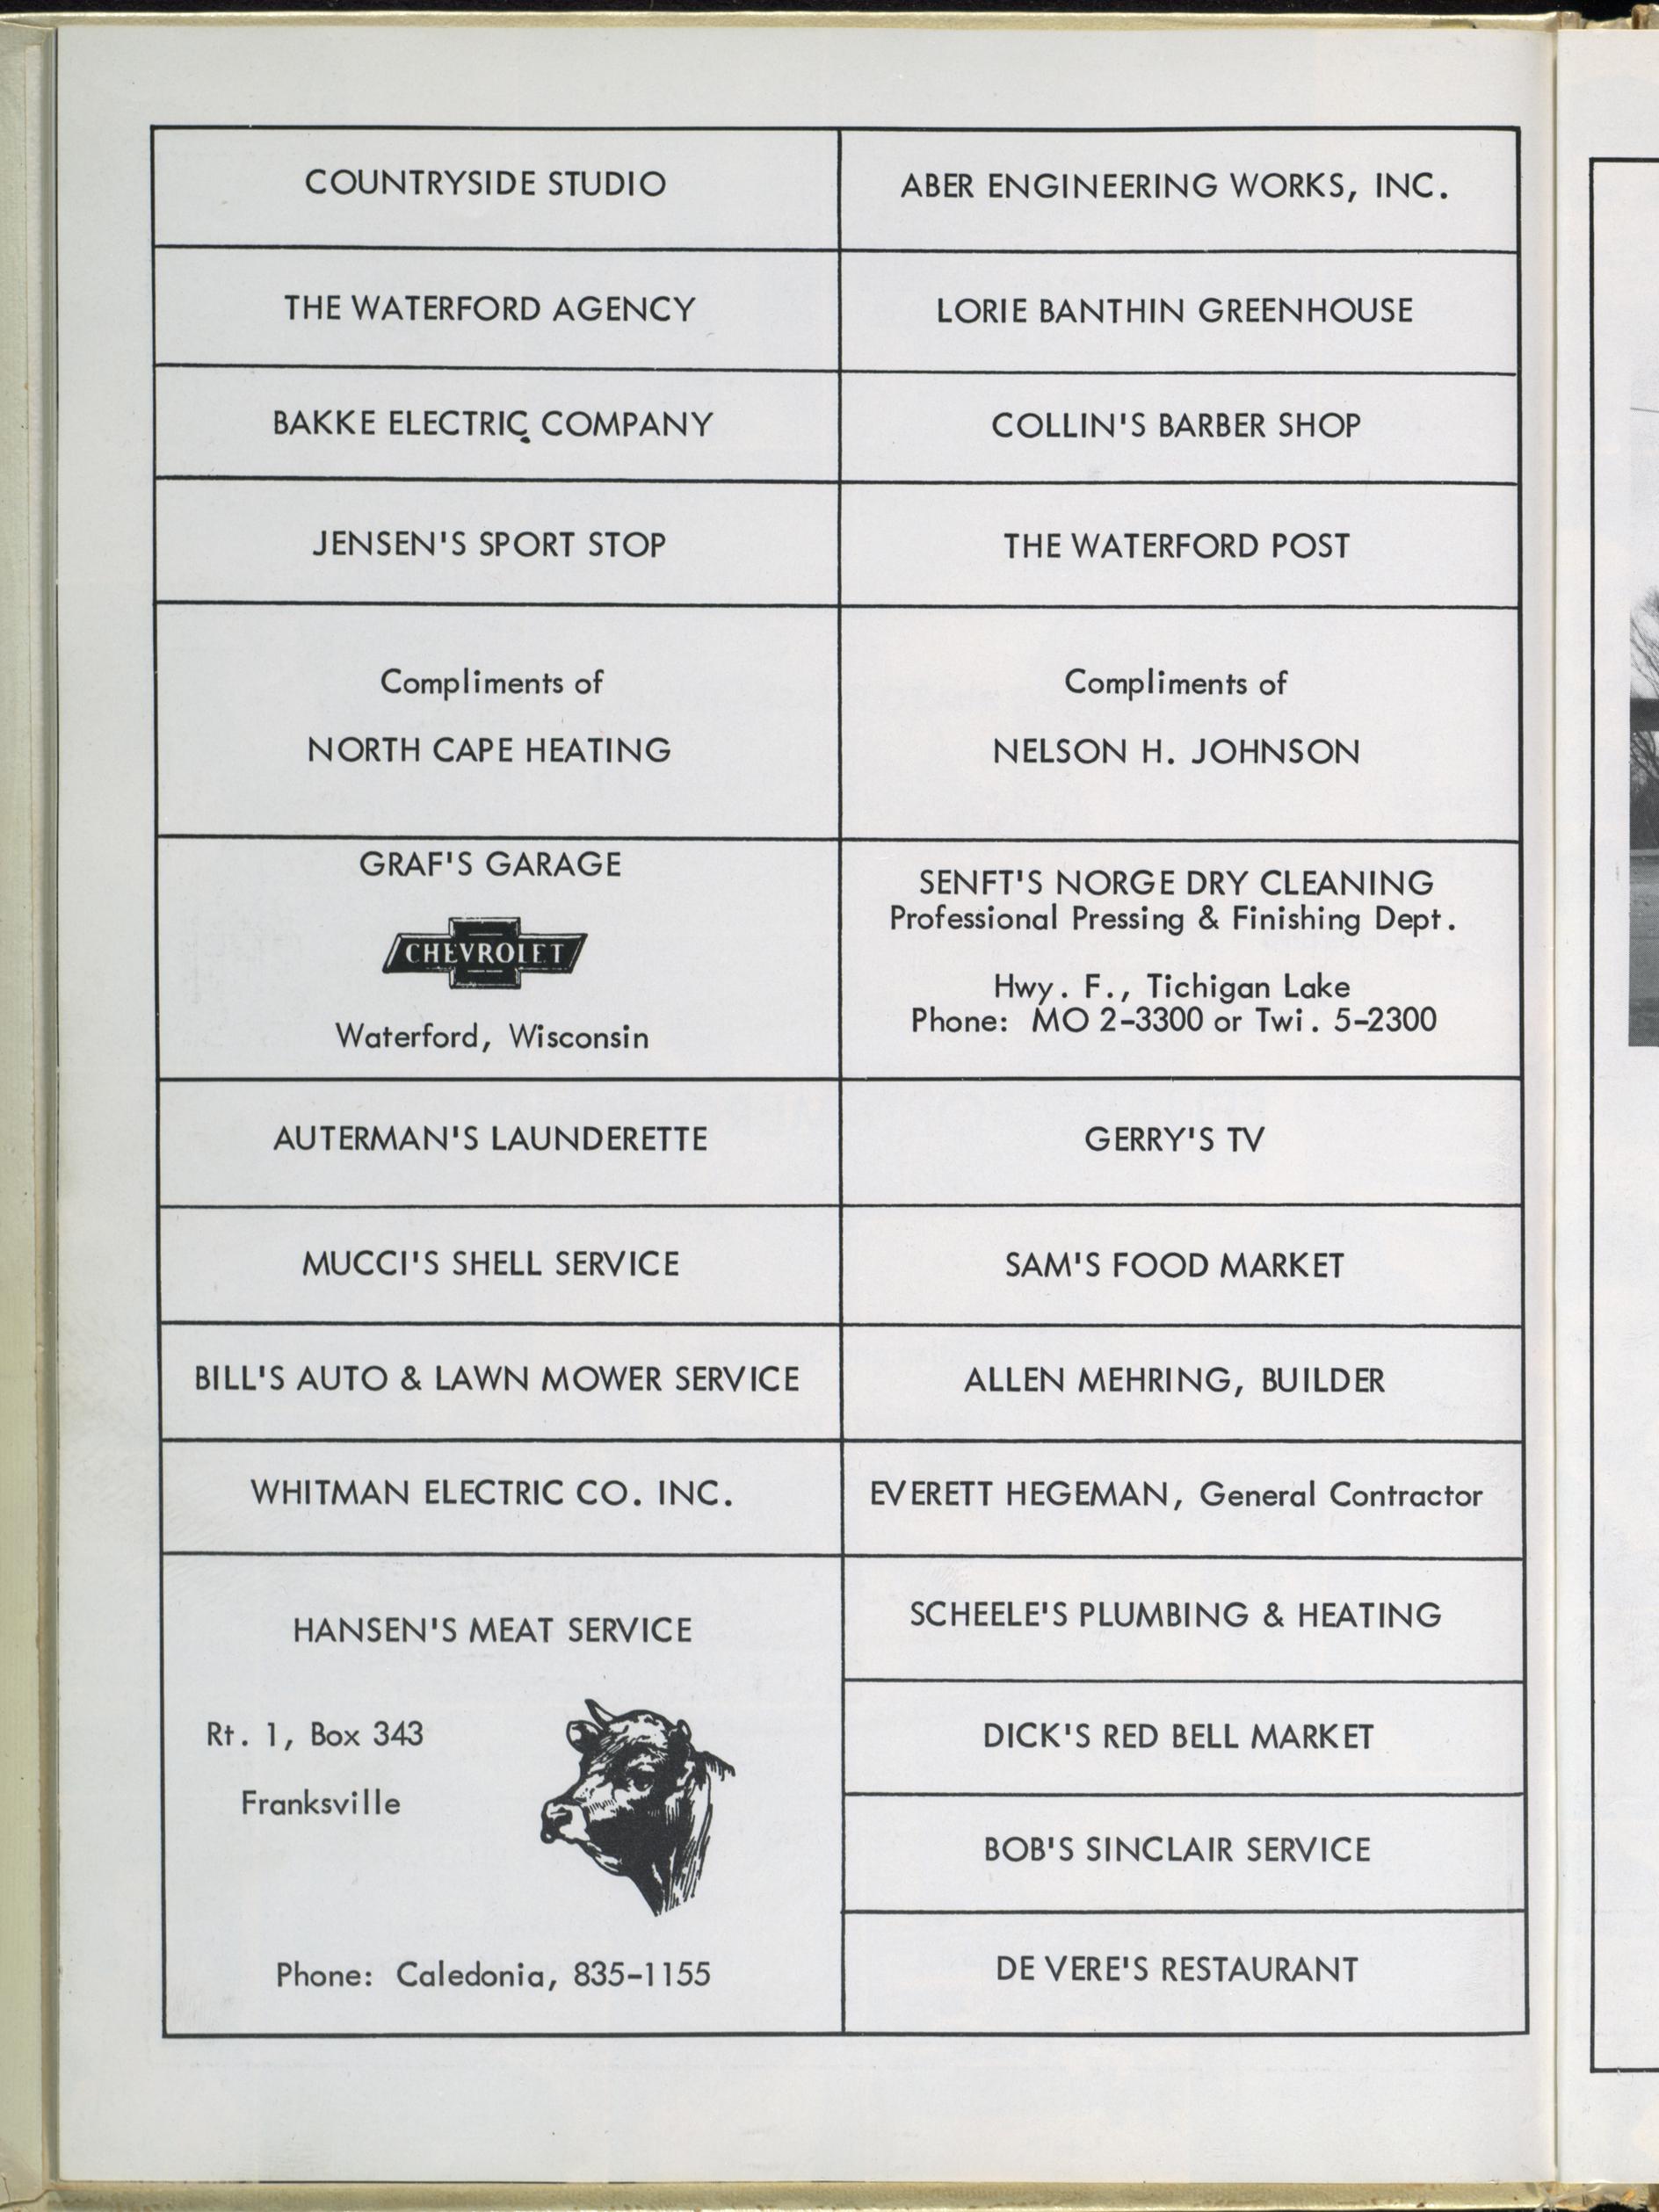 COUNTRYSIDE STUDIO
ABER ENGINEERING WORKS, INC.
THE WATERFORD AGENCY
LORIE BANTHIN GREENHOUSE
BAKKE ELECTRIC COMPANY
COLLIN'S BARBER SHOP
JENSEN'S SPORT STOP
THE WATERFORD POST
Compliments of
NORTH CAPE HEATING
Compliments of
NELSON H. JOHNSON
GRAF'S GARAGE
CHEVROLET
Waterford, Wisconsin
SENFT'S NORGE DRY CLEANING
Professional Pressing & Finishing Dept.
Hwy. F., Tichigan Lake
Phone: MO 2-3300 or Twi. 5-2300
AUTERMAN'S LAUNDERETTE
GERRY'S TV
MUCCI'S SHELL SERVICE
SAM'S FOOD MARKET
BILL'S AUTO & LAWN MOWER SERVICE
ALLEN MEHRING, BUILDER
WHITMAN ELECTRIC CO. INC.
EVERETT HEGEMAN, General Contractor
HANSEN'S MEAT SERVICE
Rt. 1, Box 343
Franksville
Phone: Caledonia, 835-1155
SCHEELE'S PLUMBING & HEATING
DICK'S RED BELL MARKET
BOB'S SINCLAIR SERVICE
DE VERE'S RESTAURANT